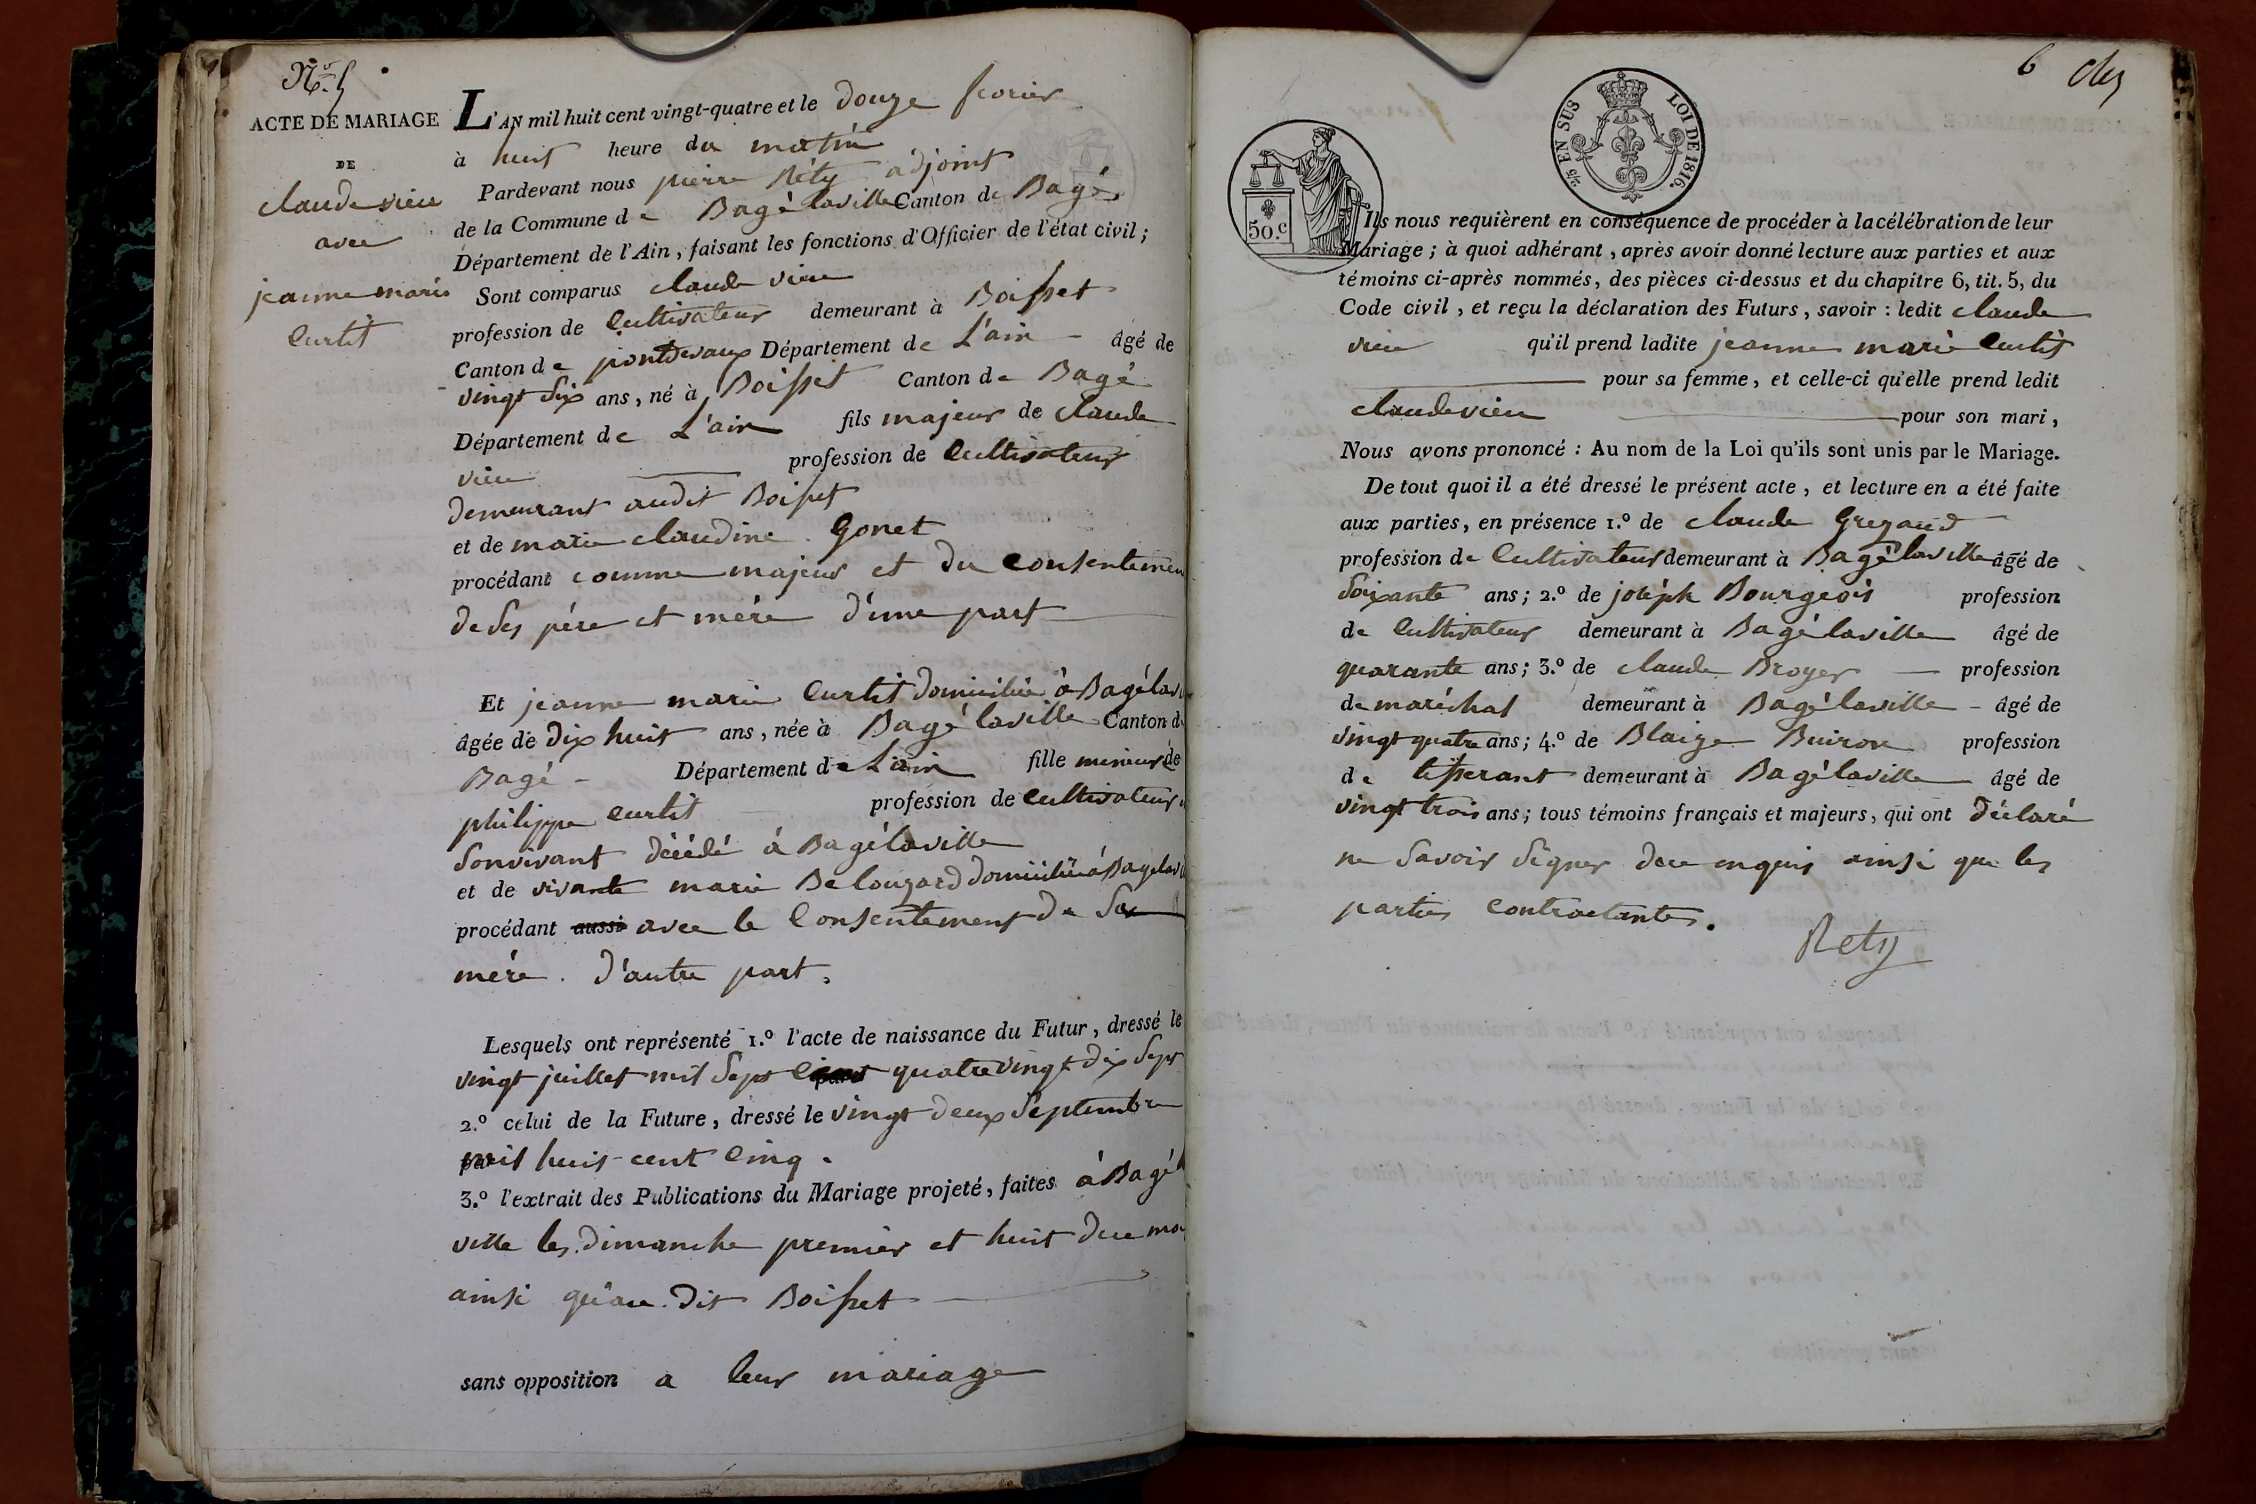 N.o 5
ACTE DE MARIAGE
DE
claude vieu
avec
jeanne marie
Curtit
L'AN mil huit cent vingt-quatre et le douze fevrier
à huit heure du matin
Pardevant nous pierre Réty adjoint
de la Commune de Bagé laville Canton de Bagé
Département de l'Ain, faisant les fonctions d'Officier de l'état civil;
Sont comparus claude vieu
profession de Cultivateur demeurant à Boisset
Canton de pontdevaux Département de L'ain - âgé de
vingt Six ans, né à Boisset Canton de Bagé
Département de L'ain fils majeur de claude
vieu profession de Cultivateur
demeurant audit Boisset
et de marie claudine Gonet
procédant comme majeur et du Consentemen
de Ses pére et mére d'une part
Et jeanne marie Curtit domiciliée à Bagélav
âgée de dix huit ans, née à Bagé laville Canton de
Bagé - Département de L'ain fille mineure de
philippe Curtit profession de Cultivateur
Sonvivant décédé à Bagélaville
et de vivante marie Belouzard domiciliée à Bagelav
procédant aussi avec le Consentement de Sa
mére. d'autre part.
Lesquels ont représenté 1.º l'acte de naissance du Futur, dressé le
vingt juillet mil Sept Cent quatrevingt dix Sept
2.º celui de la Future, dressé le vingt deux Septembre
mil huit cent Cinq.
3.º l'extrait des Publications du Mariage projeté, faites à Bagé
ville les dimanche premier et huit duu mo
ainsi qu'au dit Boisset
sans opposition a leur mariage
6
EN SUS
LOI DE 1816.
50.c
Ils nous requièrent en conséquence de procéder à la célébration de leur
Mariage; à quoi adhérant, après avoir donné lecture aux parties et aux
témoins ci-après nommés, des pièces ci-dessus et du chapitre 6, tit. 5, du
Code civil, et reçu la déclaration des Futurs, savoir : ledit claude
vieu qu'il prend ladite jeanne marie Curtit
pour sa femme, et celle-ci qu'elle prend ledit
claude vieu pour son mari,
Nous avons prononcé : Au nom de la Loi qu'ils sont unis par le Mariage.
De tout quoi il a été dressé le présent acte, et lecture en a été faite
aux parties, en présence 1.º de claude Grezaud
profession de Cultivateur demeurant à Bagé laville âgé de
Soixante ans; 2.º de joséph Bourgeois profession
de Cultivateur demeurant à Bagé laville âgé de
quarante ans; 3.º de claude Broyer profession
de maréchal demeurant à Bagé laville - âgé de
vingt quatre ans; 4.º de Blaize Buiron profession
de tisserant demeurant à Bagé laville âgé de
vingt trois ans; tous témoins français et majeurs, qui ont déclaré
ne Savoir Signer de ce enquis ainsi que les
parties Contractantes.
Rety